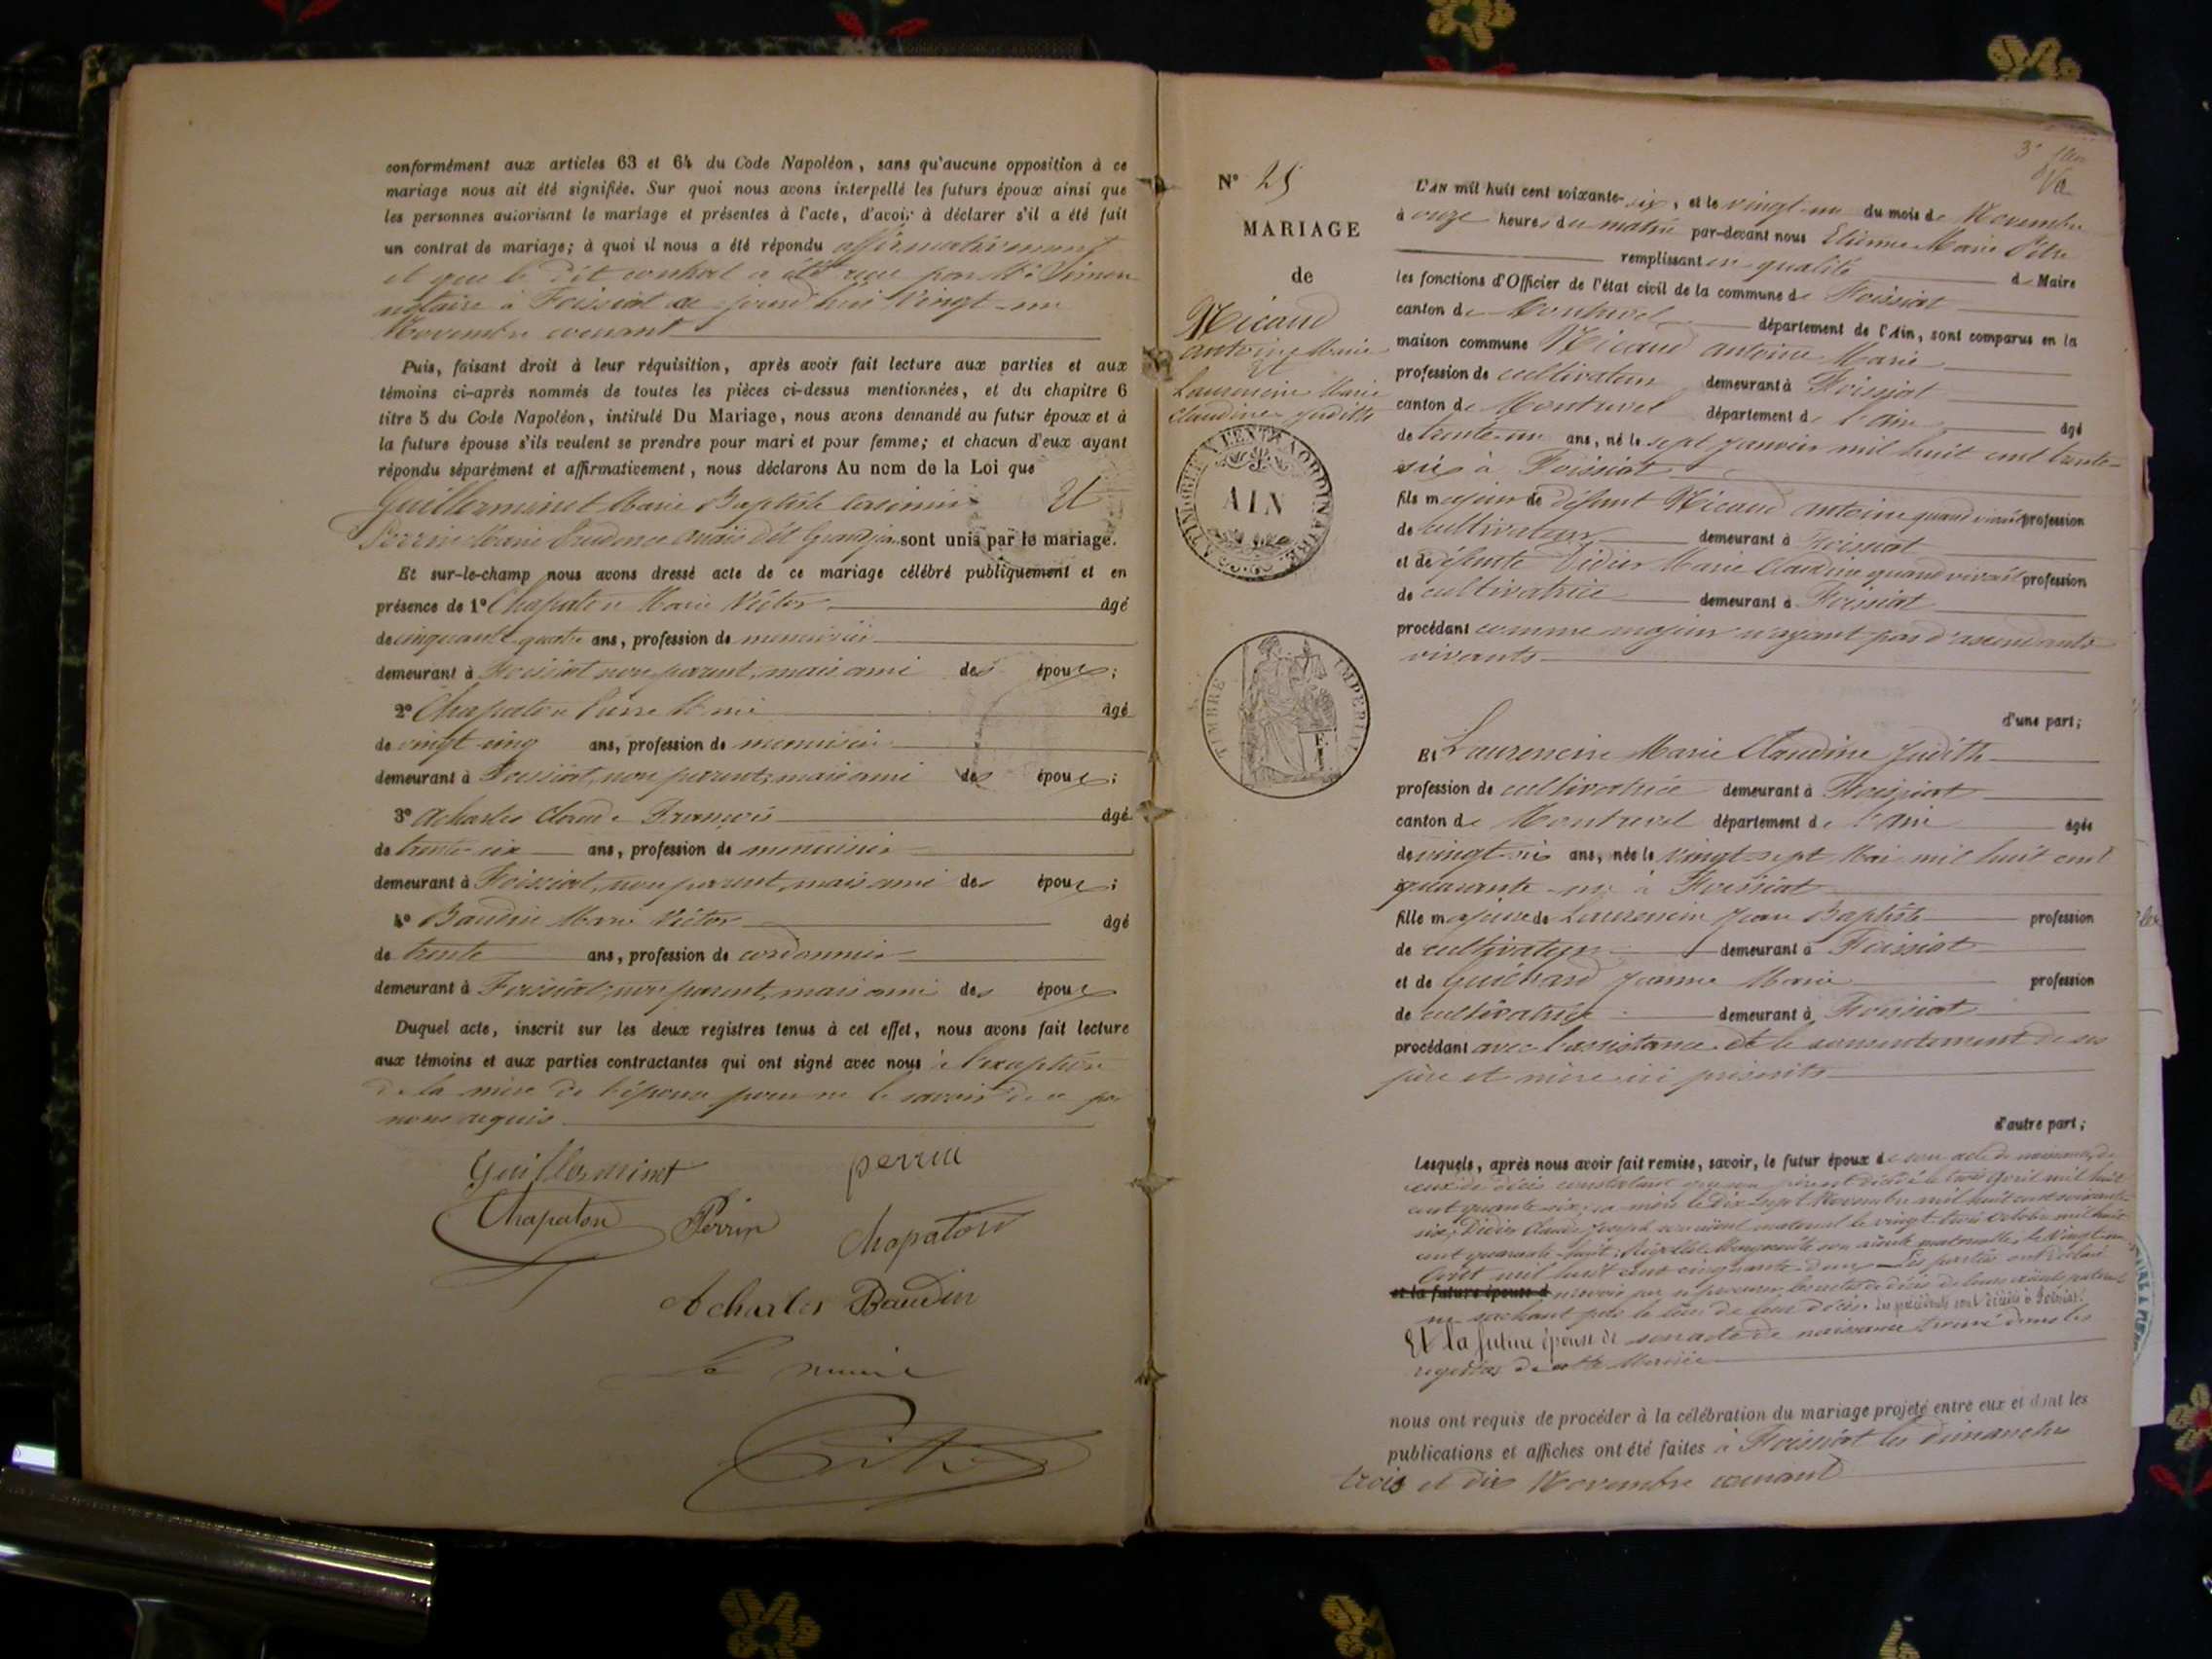 conformément aux articles 63 et 64 du Code Napoléon, sans qu'aucune opposition à ce
mariage nous ait été signifiée. Sur quoi nous avons interpellé les futurs époux ainsi que
les personnes autorisant le mariage et présentes à l'acte, d'avoir à déclarer s'il a été fait
un contrat de mariage; à quoi il nous a été répondu affirmativement
et que le dit contrat a été reçu par Me Simon
notaire à Foissiat ce jourd'hui vingt-un
Novembre courant
Puis, faisant droit à leur réquisition, après avoir fait lecture aux parties et aux
témoins ci-après nommés de toutes les pièces ci-dessus mentionnées, et du chapitre 6
titre 5 du Code Napoléon, intitulé Du Mariage, nous avons demandé au futur époux et à
la future épouse s'ils veulent se prendre pour mari et pour femme; et chacun d'eux ayant
répondu séparément et affirmativement, nous déclarons Au nom de la Loi que
Guillerminet Marie Baptiste Casimir Et
Perrin Marie Prudence Anaïs dét Grandjean sont unis par le mariage.
Et sur-le-champ nous avons dressé acte de ce mariage célébré publiquement et en
présence de 1° Chapaton Marie Victor âgé
de cinquante quatre ans, profession de menuisier
demeurant à Foissiat non parent, mais ami des époux;
2° Chapaton Pierre âgé
de vingt cinq ans, profession de menuisier
demeurant à Foissiat, non parent, mais ami des époux;
3° Acharles Claude François âgé
de trente-six ans, profession de menuisier
demeurant à Foissiat, non parent, mais ami des époux;
4° Baudin Marie Victor âgé
de trente ans, profession de cordonnier
demeurant à Foissiat, non parent, mais ami des époux
Duquel acte, inscrit sur les deux registres tenus à cet effet, nous avons fait lecture
aux témoins et aux parties contractantes qui ont signé avec nous à l'exception
de la mère de l'épouse pour ne le savoir de ce par
nous requis
Guillerminet perrin
Chapaton Perrin Chapaton
Acharles Baudin
Le maire
N° 25
MARIAGE
de
Micaud
Antoine Marie
Et
Laurencin Marie
Claudine Judith
TIMBRE A L'EXTRAORDINAIRE
AIN
TIMBRE IMPERIAL
L'AN mil huit cent soixante-six, et le vingt-un du mois de Novembre
à onze heures du matin par-devant nous Etienne Marie Pitre
remplissant en qualité de Maire
les fonctions d'Officier de l'état civil de la commune de Foissiat
canton de Montrevel département de l'Ain, sont comparus en la
maison commune Micaud Antoine Marie
profession de cultivateur demeurant à Foissiat
canton de Montrevel département de l'ain âgé
de trente-un ans, né le sept Janvier mil huit cent trente-
six à Foissiat
fils majeur de défunt Micaud Antoine quand vivait profession
de cultivateur demeurant à Foissiat
et de défunte Didier Marie Claudine quand vivait profession
de cultivatrice demeurant à Foissiat
procédant comme majeur n'ayant pas d'ascendants
vivants
d'une part;
Et Laurencin Marie Claudine Judith
profession de cultivatrice demeurant à Foissiat
canton de Montrevel département de l'ain âgée
de vingt-six ans, née le vingt-sept Mai mil huit cent
quarante à Foissiat
fille majeure de Laurencin Jean Baptiste profession
de cultivateur demeurant à Foissiat
et de Guichard Jeanne Marie profession
de cultivatrice demeurant à Foissiat
procédant avec l'assistance et le consentement de ses
père et mère ici présents
d'autre part;
Lesquels, après nous avoir fait remise, savoir, le futur époux de son acte de naissance, de
ceux de décès constatant que son père est décédé le trois Avril mil huit
cent quarante six; sa mère le dix-sept Novembre mil huit cent soixante-
six; Didier Claude Joseph son aïeul maternel le vingt-trois Octobre mil huit
cent quarante-huit; Marguerite son aïeule maternelle, le vingt-un
Août mil huit cent cinquante-deux. Les parties ont déclaré
et la future épouse d n'avoir pu se procurer les actes de décès de leurs aïeuls paternels
ne sachant pas le lieu de leur décès. Les précédents sont décédés à Foissiat.
Et la future épouse de son acte de naissance trouvé dans les
registres de cette Mairie
nous ont requis de procéder à la célébration du mariage projeté entre eux et dont les
publications et affiches ont été faites à Foissiat les dimanches
trois et dix Novembre courant